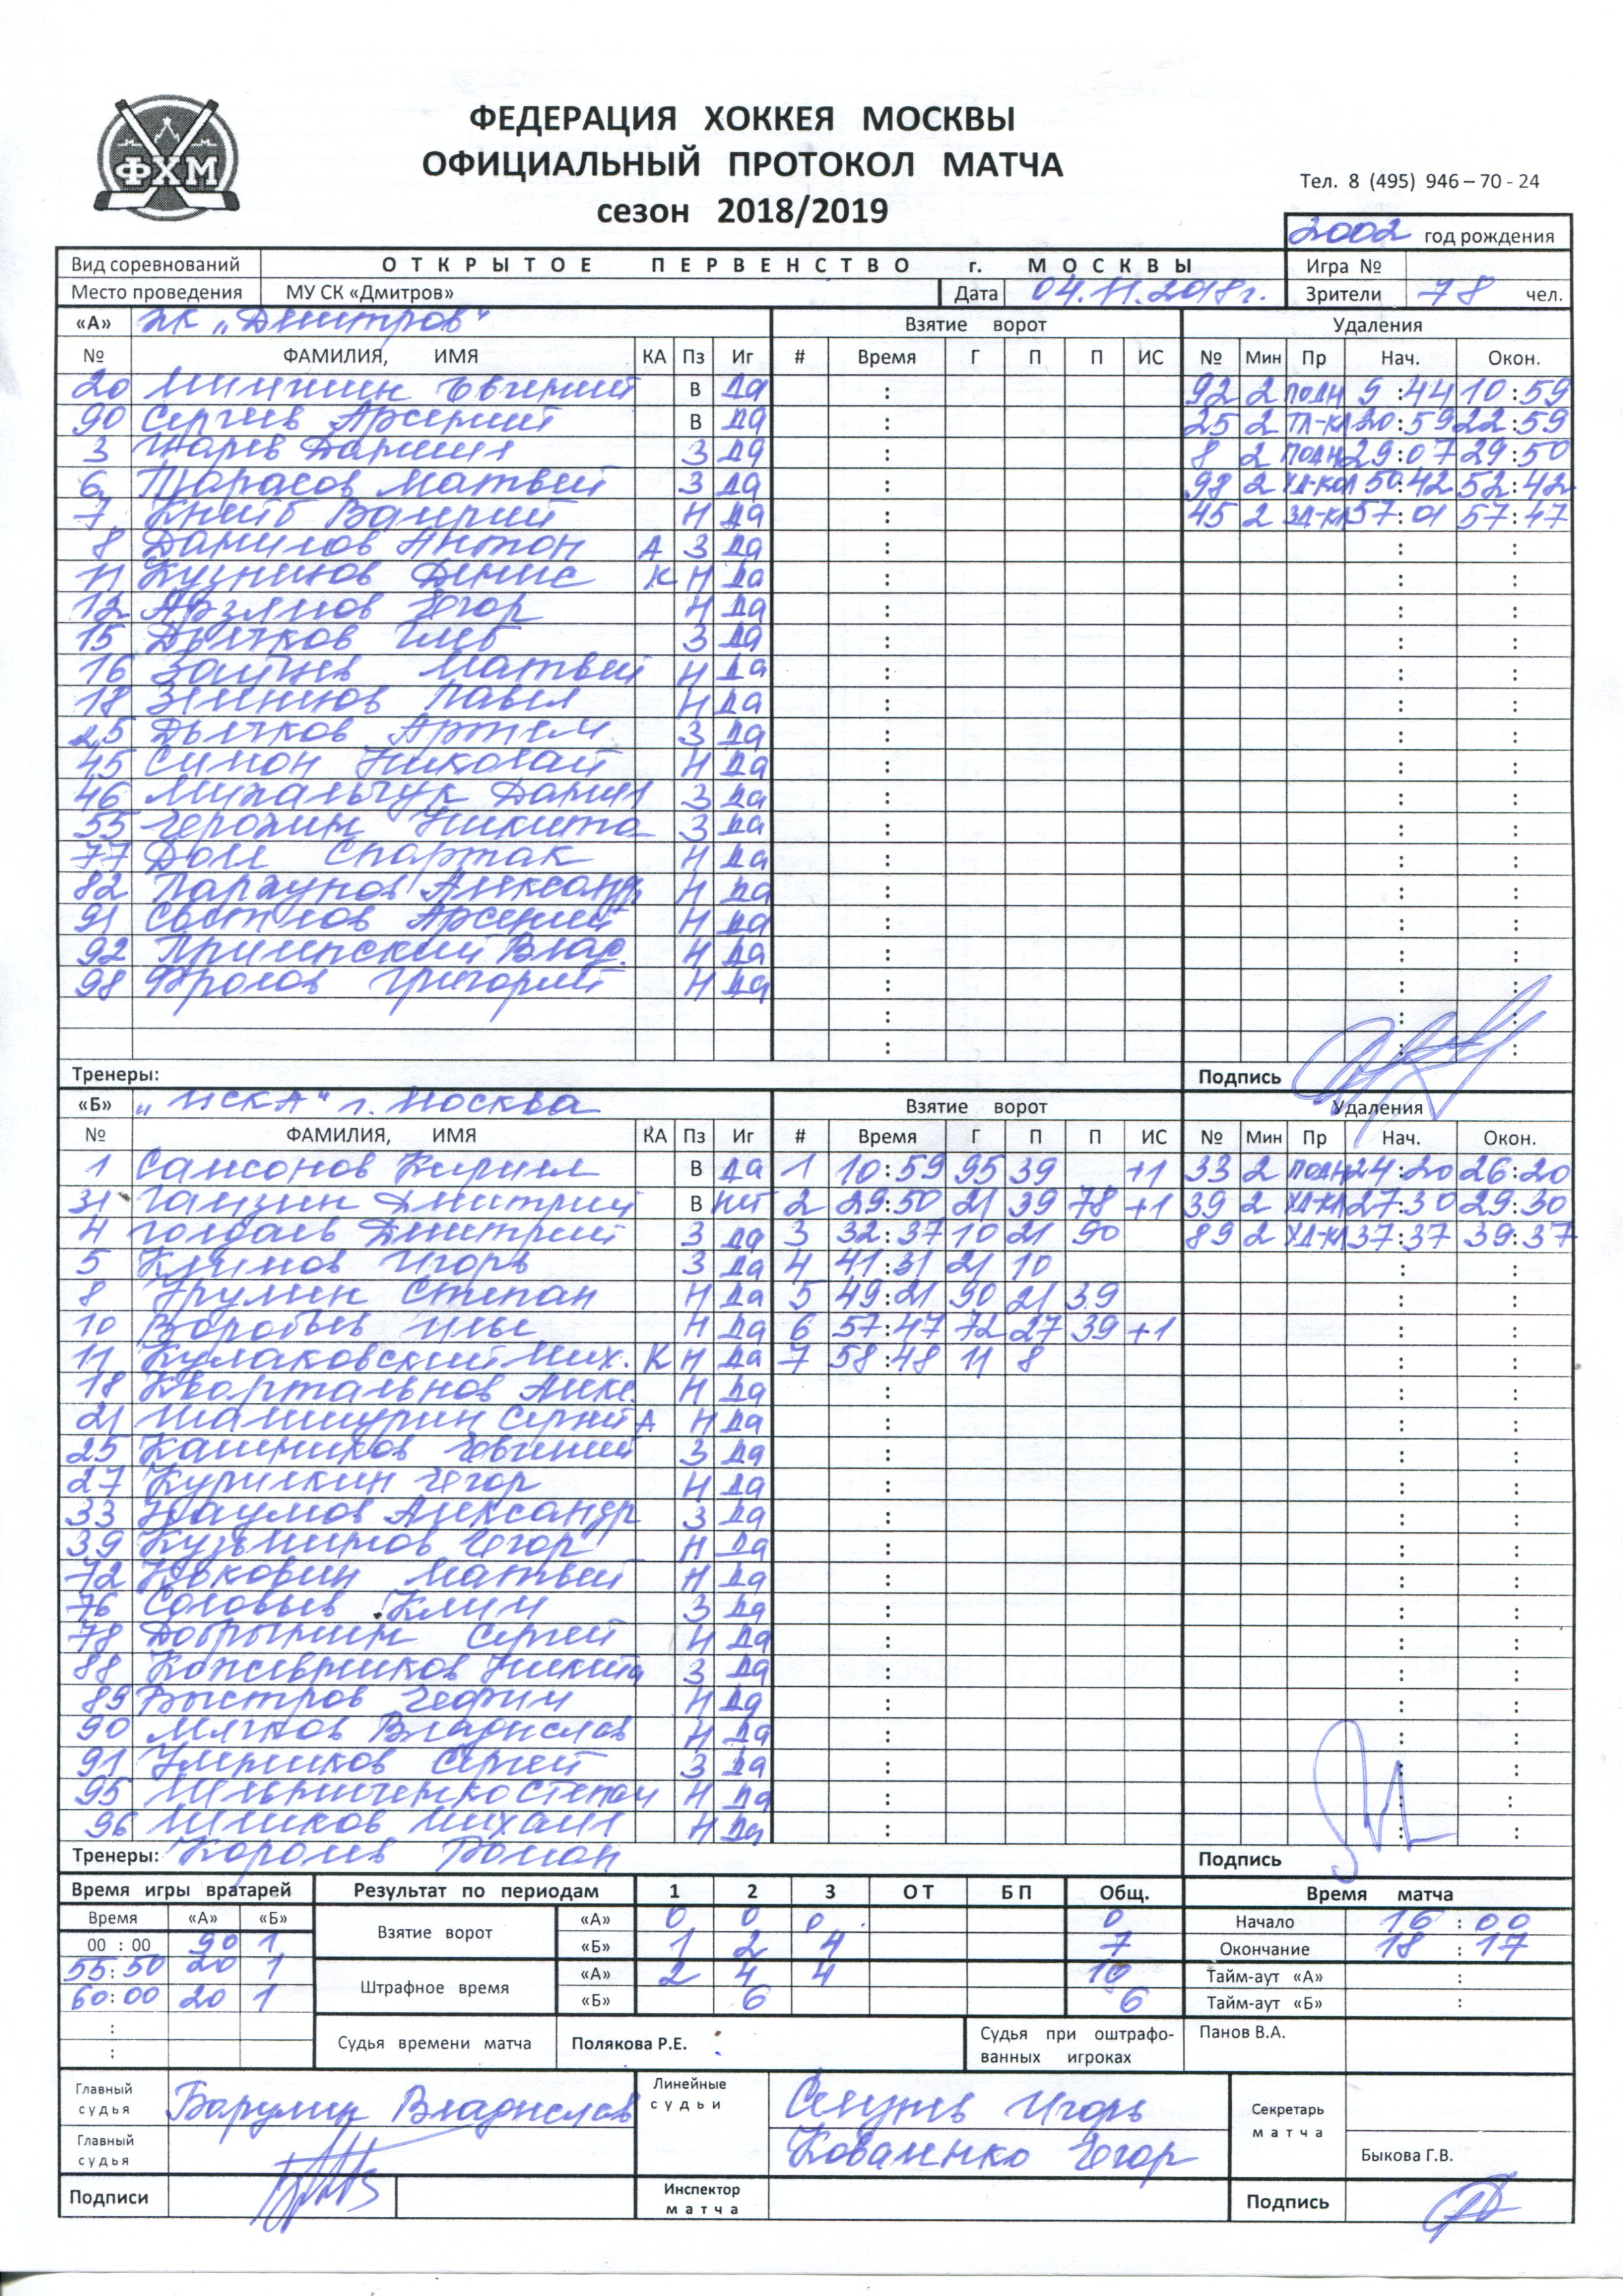 ФХМ
ФЕДЕРАЦИЯ ХОККЕЯ МОСКВЫ
ОФИЦИАЛЬНЫЙ ПРОТОКОЛ МАТЧА
сезон 2018/2019
Тел. 8 (495) 946 – 70 - 24
2002 год рождения
Вид соревнований ОТКРЫТОЕ ПЕРВЕНСТВО г. МОСКВЫ Игра №
Место проведения МУ СК «Дмитров» Дата 04.11.2018г. Зрители 78 чел.
«А» ХК „Дмитров" Взятие ворот Удаления
№ ФАМИЛИЯ, ИМЯ КА Пз Иг # Время Г П П ИС № Мин Пр Нач. Окон.
20 Евгений В да : 92 2 подн 9:44 10:59
90 Сергеев Арсений В да : 25 2 20:59 22:59
3 Царев Даниил З да : 8 2 подн 29:07 29:50
6 Тарасов Матвей З да : 98 2 50:42 52:42
7 Валерий Н да : 45 2 57:01 57:47
8 Данилов Антон А З да : : :
11 Кузнецов Денис К Н да : : :
12 Арзянов Егор Н да : : :
15 Дьячков Глеб З да : : :
16 Зайцев Матвей Н да : : :
18 Павел Н да : : :
25 Дьячков Артем З да : : :
45 Симон Николай Н да : : :
46 Михальчук Даниил З да : : :
55 Никита З да : : :
77 Спартак Н да : : :
82 Паршунов Александр Н да : : :
91 Светлов Арсений Н да : : :
92 Влад. Н да : : :
98 Фролов Григорий Н да : : :
:
:
Тренеры: Подпись
«Б» „ЦСКА" г. Москва Взятие ворот Удаления
№ ФАМИЛИЯ, ИМЯ КА Пз Иг # Время Г П П ИС № Мин Пр Нач. Окон.
1 Самсонов Кирилл В да 1 10:59 95 39 +1 33 2 подн 24:20 26:20
31 Гамзин Дмитрий В нет 2 29:50 21 39 78 +1 39 2 27:30 29:30
4 Голдаев Дмитрий З да 3 32:37 10 21 90 89 2 37:37 39:37
5 Климов Игорь З да 4 41:31 21 10 : :
8 Степан Н да 5 49:21 90 21 39 : :
10 Воробьев Илья Н да 6 57:47 72 27 39 +1 : :
11 Кулаковский Мих. К Н да 7 58:48 11 8 : :
18 Квартальнов Алекс. Н да : : :
21 Шамшурин Сергей А Н да : : :
25 Калинников Евгений З да : : :
27 Курилкин Егор Н да : : :
33 Наумов Александр З да : : :
39 Егор Н да : : :
72 Матвей Н да : : :
76 Соловьев Клим З да : : :
78 Добрынин Сергей Н да : : :
88 Кожевников Никита З да : : :
89 Быстров Н да : : :
90 Мячков Владислав Н да : : :
91 Сергей З да : : :
95 Мельниченко Степан Н да : : :
96 Михаил Н да : : :
Тренеры: Королев Роман Подпись
Время игры вратарей Результат по периодам 1 2 3 ОТ БП Общ. Время матча
Время «А» «Б» Взятие ворот «А» 0 0 0 0 Начало 16:00
00 : 00 90 1 «Б» 1 2 4 7 Окончание 18:17
55:50 20 1 Штрафное время «А» 2 4 4 10 Тайм-аут «А» :
60:00 20 1 «Б» 6 6 Тайм-аут «Б» :
:
:
Судья времени матча Полякова Р.Е. Судья при оштрафо-
ванных игроках Панов В.А.
Главный судья Барулин Владислав Линейные судьи Игорь
Главный судья Коваленко Егор
Секретарь матча Быкова Г.В.
Подписи Инспектор матча Подпись